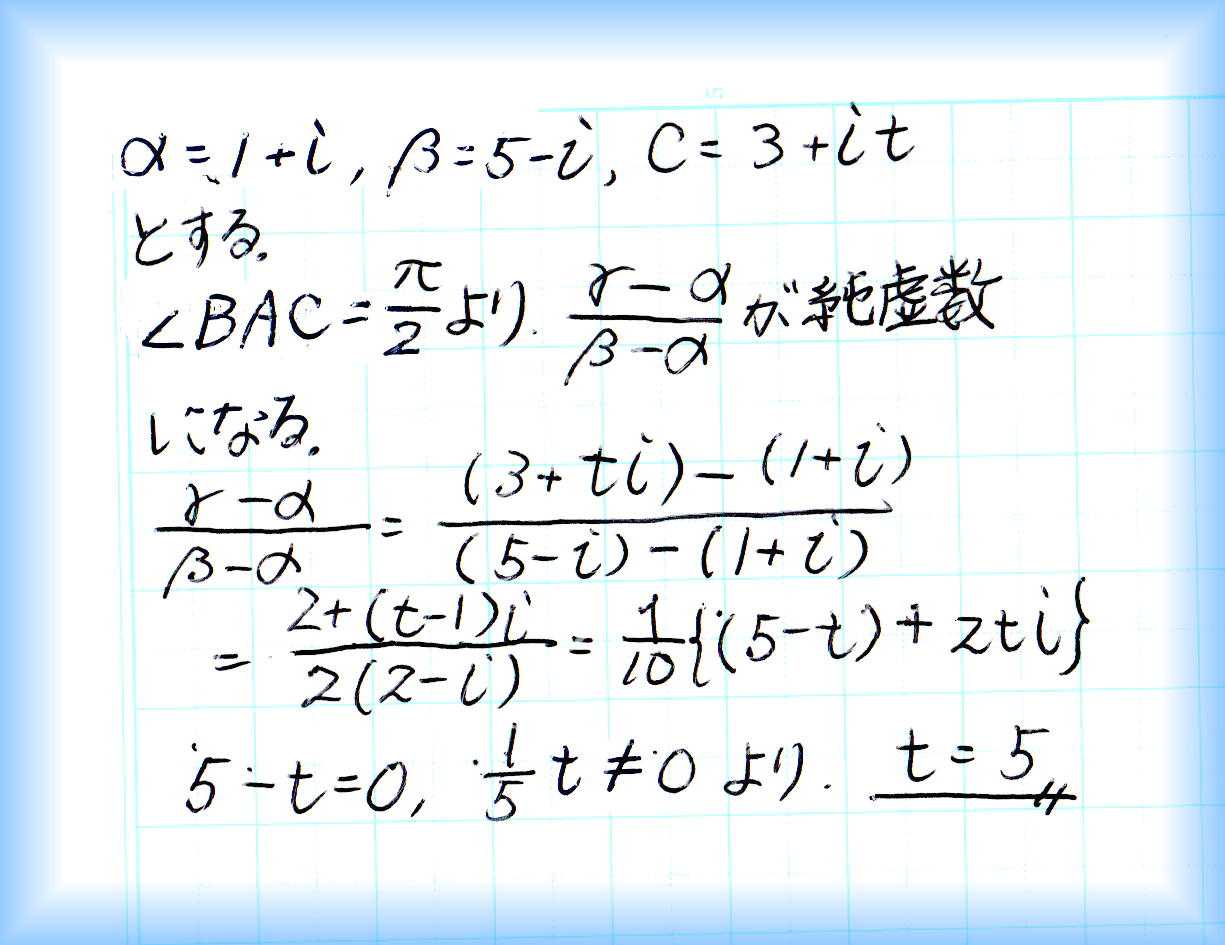 α=1+i, β=5-i, C=3+it
とする.
∠BAC=π/2より. (γ-α)/(β-α)が純虚数
になる.
(γ-α)/(β-α) = ((3+ti)-(1+i))/((5-i)-(1+i))
= (2+(t-1)i)/(2(2-i)) = 1/10{(5-t)+2ti}
5-t=0, 1/5 t≠0 より. t=5〃